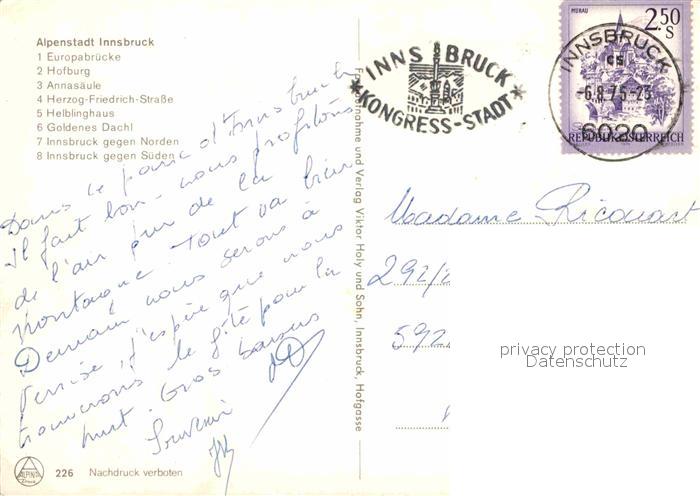 Alpenstadt Innsbruck
1 Europabrücke
2 Hofburg
3 Annasäule
4 Herzog-Friedrich-Straße
5 Helblinghaus
6 Goldenes Dachl
7 Innsbruck gegen Norden
8 Innsbruck gegen Süden
Dans le parc d'Innsbruck
Il fait bon - nous profitons
de l'air pur de la
Montagne. Tout va bien
Demain nous serons à
Venise, j'espère que nous
trouverons le gîte pour la
nuit. Gros baisers
Souvenir
ALPINA
226 Nachdruck verboten
Farbaufnahme und Verlag Viktor Holy und Sohn, Innsbruck, Hofgasse
INNSBRUCK
*KONGRESS-STADT*
MURAU
2.50
S
REPUBLIK ÖSTERREICH
INNSBRUCK
-6.8.75-23
6020
Madame Ricouart
291/
592
privacy protection
Datenschutz